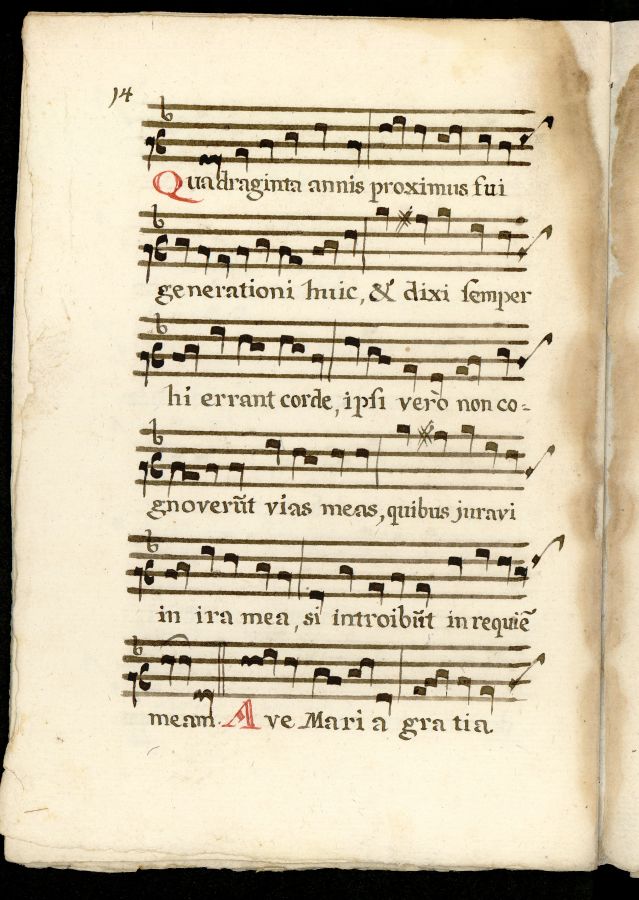 14
Quadraginta annis proximus fui
generationi huic, & dixi semper
hi errant corde, ipsi verò non co=
gnoverũt vias meas, quibus juravi
in ira mea, si introibũt in requiẽ
meam. Ave Maria gratia